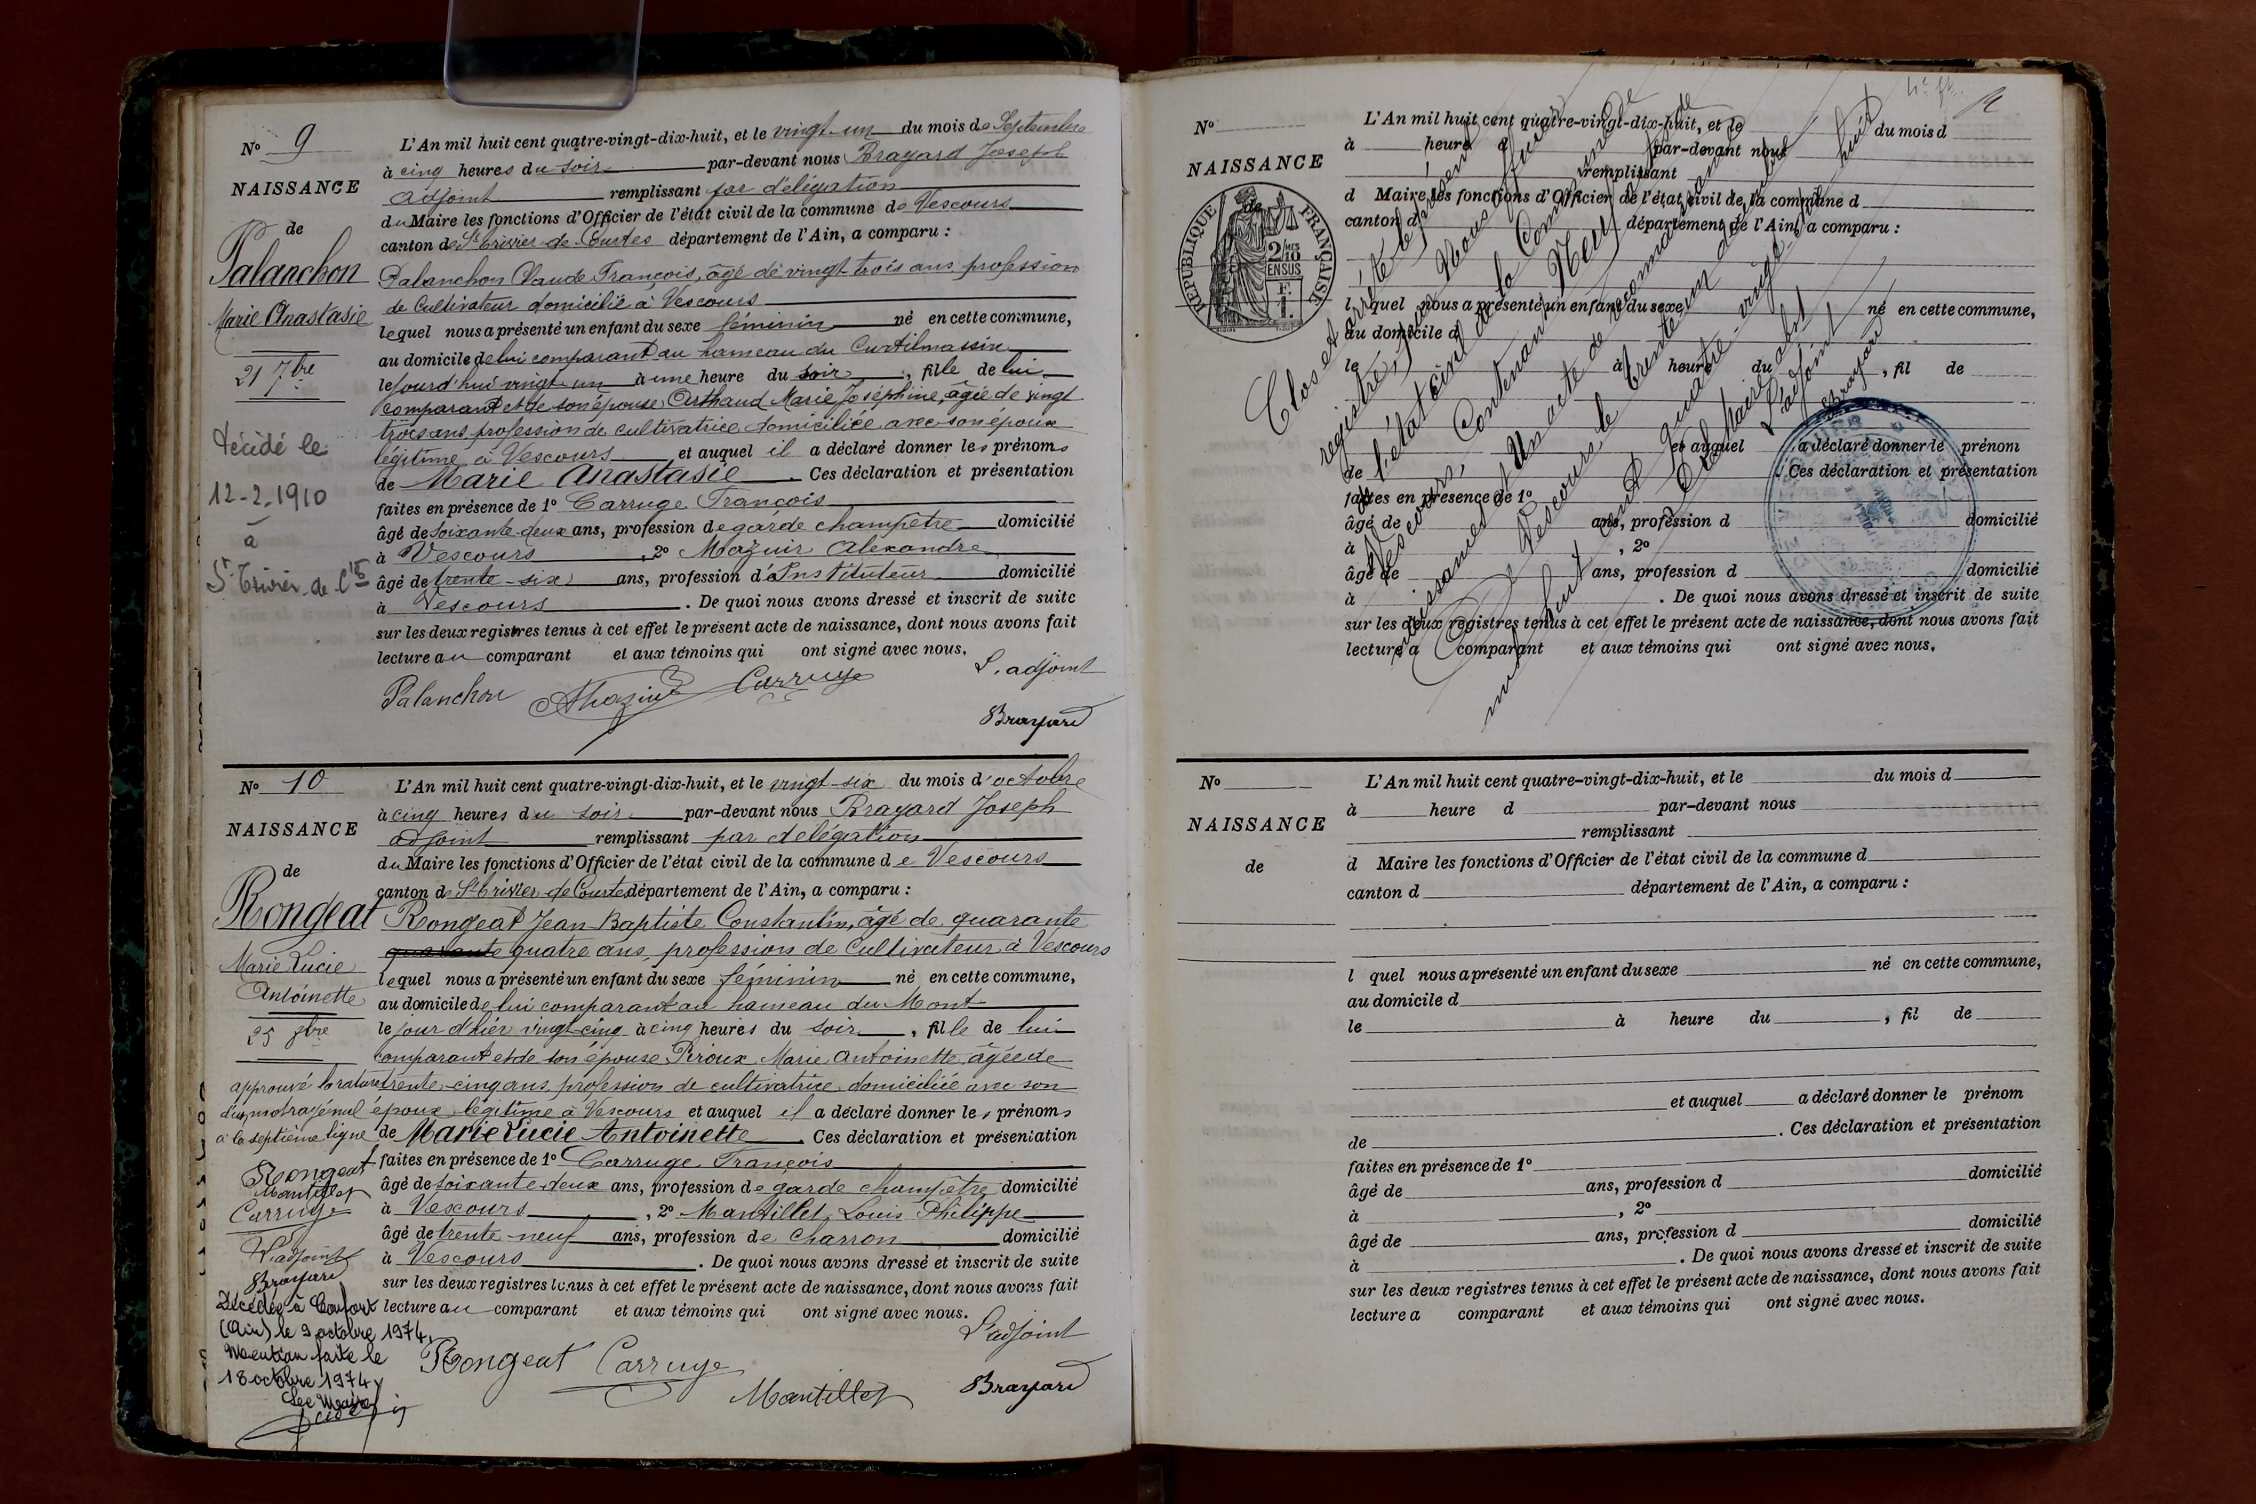 N° 9
NAISSANCE
de
Palanchon
Marie Anastasie
21 7bre
Décédé le
12-2-1910
à
St Trivier de Ctes
L'An mil huit cent quatre-vingt-dix-huit, et le vingt-un du mois de Septembre
à cinq heures du soir par-devant nous Brayard Joseph
adjoint remplissant par délégation
du Maire les fonctions d'Officier de l'état civil de la commune de Vescours
canton de St Trivier de Courtes département de l'Ain, a comparu :
Palanchon Claude François, âgé de vingt-trois ans profession
de Cultivateur domicilié à Vescours
lequel nous a présenté un enfant du sexe féminin né en cette commune,
au domicile de lui comparant au hameau du Curtilmassin
le jourd'hui vingt-un à une heure du soir, fille de lui
comparant et de son épouse Arthaud Marie Joséphine, âgée de vingt
trois ans profession de cultivatrice domiciliée avec son époux
légitime à Vescours et auquel il a déclaré donner les prénoms
de Marie Anastasie. Ces déclaration et présentation
faites en présence de 1° Carruge François
âgé de soixante-deux ans, profession de garde champêtre domicilié
à Vescours, 2° Mazuir Alexandre
âgé de trente-six ans, profession d'Instituteur domicilié
à Vescours. De quoi nous avons dressé et inscrit de suite
sur les deux registres tenus à cet effet le présent acte de naissance, dont nous avons fait
lecture au comparant et aux témoins qui ont signé avec nous.
L'adjoint
Palanchon AMazuir Carruge
Brayard
N° 10
NAISSANCE
de
Rongeat
Marie Lucie
Antoinette
25 8bre
approuvé la rature
d'un mot rayé nul
à la septième ligne
Rongeat
Mantillet
Carruge
L'adjoint
Brayard
Décédée à Confort
(Ain) le 9 octobre 1974.
Mention faite le
18 octobre 1974
Le Maire
L'An mil huit cent quatre-vingt-dix-huit, et le vingt-six du mois d'octobre
à cinq heures du soir par-devant nous Brayard Joseph
adjoint remplissant par délégation
du Maire les fonctions d'Officier de l'état civil de la commune de Vescours
canton de St Trivier de Courtes département de l'Ain, a comparu :
Rongeat Jean Baptiste Constantin, âgé de quarante
quarante quatre ans, profession de Cultivateur à Vescours
lequel nous a présenté un enfant du sexe féminin né en cette commune,
au domicile de lui comparant au hameau du Mont
le jour d'hier vingt-cinq à cinq heures du soir, fille de lui
comparant et de son épouse Péroux Marie Antoinette, âgée de
trente-cinq ans, profession de cultivatrice domiciliée avec son
époux légitime à Vescours et auquel il a déclaré donner les prénoms
de Marie Lucie Antoinette. Ces déclaration et présentation
faites en présence de 1° Carruge François
âgé de soixante-deux ans, profession de garde champêtre domicilié
à Vescours, 2° Mantillet Louis Philippe
âgé de trente-neuf ans, profession de charron domicilié
à Vescours. De quoi nous avons dressé et inscrit de suite
sur les deux registres tenus à cet effet le présent acte de naissance, dont nous avons fait
lecture au comparant et aux témoins qui ont signé avec nous.
L'adjoint
Rongeat Carruge
Mantillet Brayard
N°
NAISSANCE
de
RÉPUBLIQUE FRANÇAISE
2/10 MES
EN SUS
F.
1.
L'An mil huit cent quatre-vingt-dix-huit, et le du mois d
à heure d par-devant nous
remplissant
d Maire les fonctions d'Officier de l'état civil de la commune d
canton d département de l'Ain, a comparu :
l quel nous a présenté un enfant du sexe né en cette commune,
au domicile d
le à heure du , fil de
et auquel a déclaré donner le prénom
de Ces déclaration et présentation
faites en présence de 1°
âgé de ans, profession d domicilié
à , 2°
âgé de ans, profession d domicilié
à . De quoi nous avons dressé et inscrit de suite
sur les deux registres tenus à cet effet le présent acte de naissance, dont nous avons fait
lecture a comparant et aux témoins qui ont signé avec nous.
Clos et arrêté le présent
registre, par Nous
de l'état civil de la Commune de
Vescours, Contenant Neuf actes de
naissances et Un acte de reconnaissance
A Vescours le trente un décembre
mil huit cent quatre-vingt-dix huit
P. le Maire abst
L'adjoint
Brayard
N°
NAISSANCE
de
L'An mil huit cent quatre-vingt-dix-huit, et le du mois d
à heure d par-devant nous
remplissant
d Maire les fonctions d'Officier de l'état civil de la commune d
canton d département de l'Ain, a comparu :
l quel nous a présenté un enfant du sexe né en cette commune,
au domicile d
le à heure du , fil de
et auquel a déclaré donner le prénom
de . Ces déclaration et présentation
faites en présence de 1°
âgé de ans, profession d domicilié
à , 2°
âgé de ans, profession d domicilié
à . De quoi nous avons dressé et inscrit de suite
sur les deux registres tenus à cet effet le présent acte de naissance, dont nous avons fait
lecture a comparant et aux témoins qui ont signé avec nous.